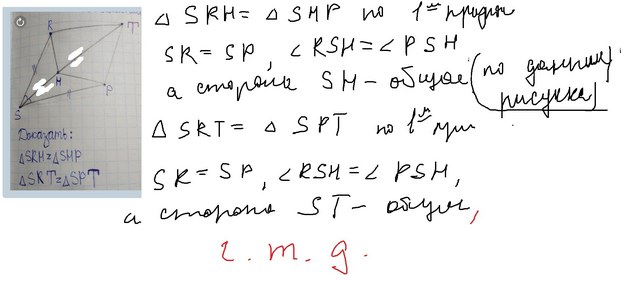 R
T
H
P
S
Доказать:
△SRH=△SHP
△SRT=△SPT
△ SRH = △ SHP по 1ому призн
SR = SP, ∠RSH = ∠PSH
а сторона SH - общая (по данным рисунка)
△ SRT = △ SPT по 1ому при
SR = SP, ∠RSH = ∠PSH,
а сторона ST - общая,
ч. т. д.